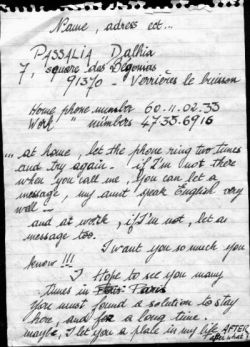 Name, adress ect...
PASSALIA Dalhia
7, square des Bégonias
91370 - Verrières le buisson
Home phone number 60.11.02.33
Work " numbers 47.35.6916
... at home, let the phone ring two times
and try again. if I'm not there
when you call me, you can let a
message, my aunt speak English very
well -
and at work, if I'm not, let a
message too.
I want you so much you
know !!!
I Hope to see you many
times in Paris
You must found a solution to stay
here, and for a long time.
maybe, I let you a place in my life AFTER
after what?